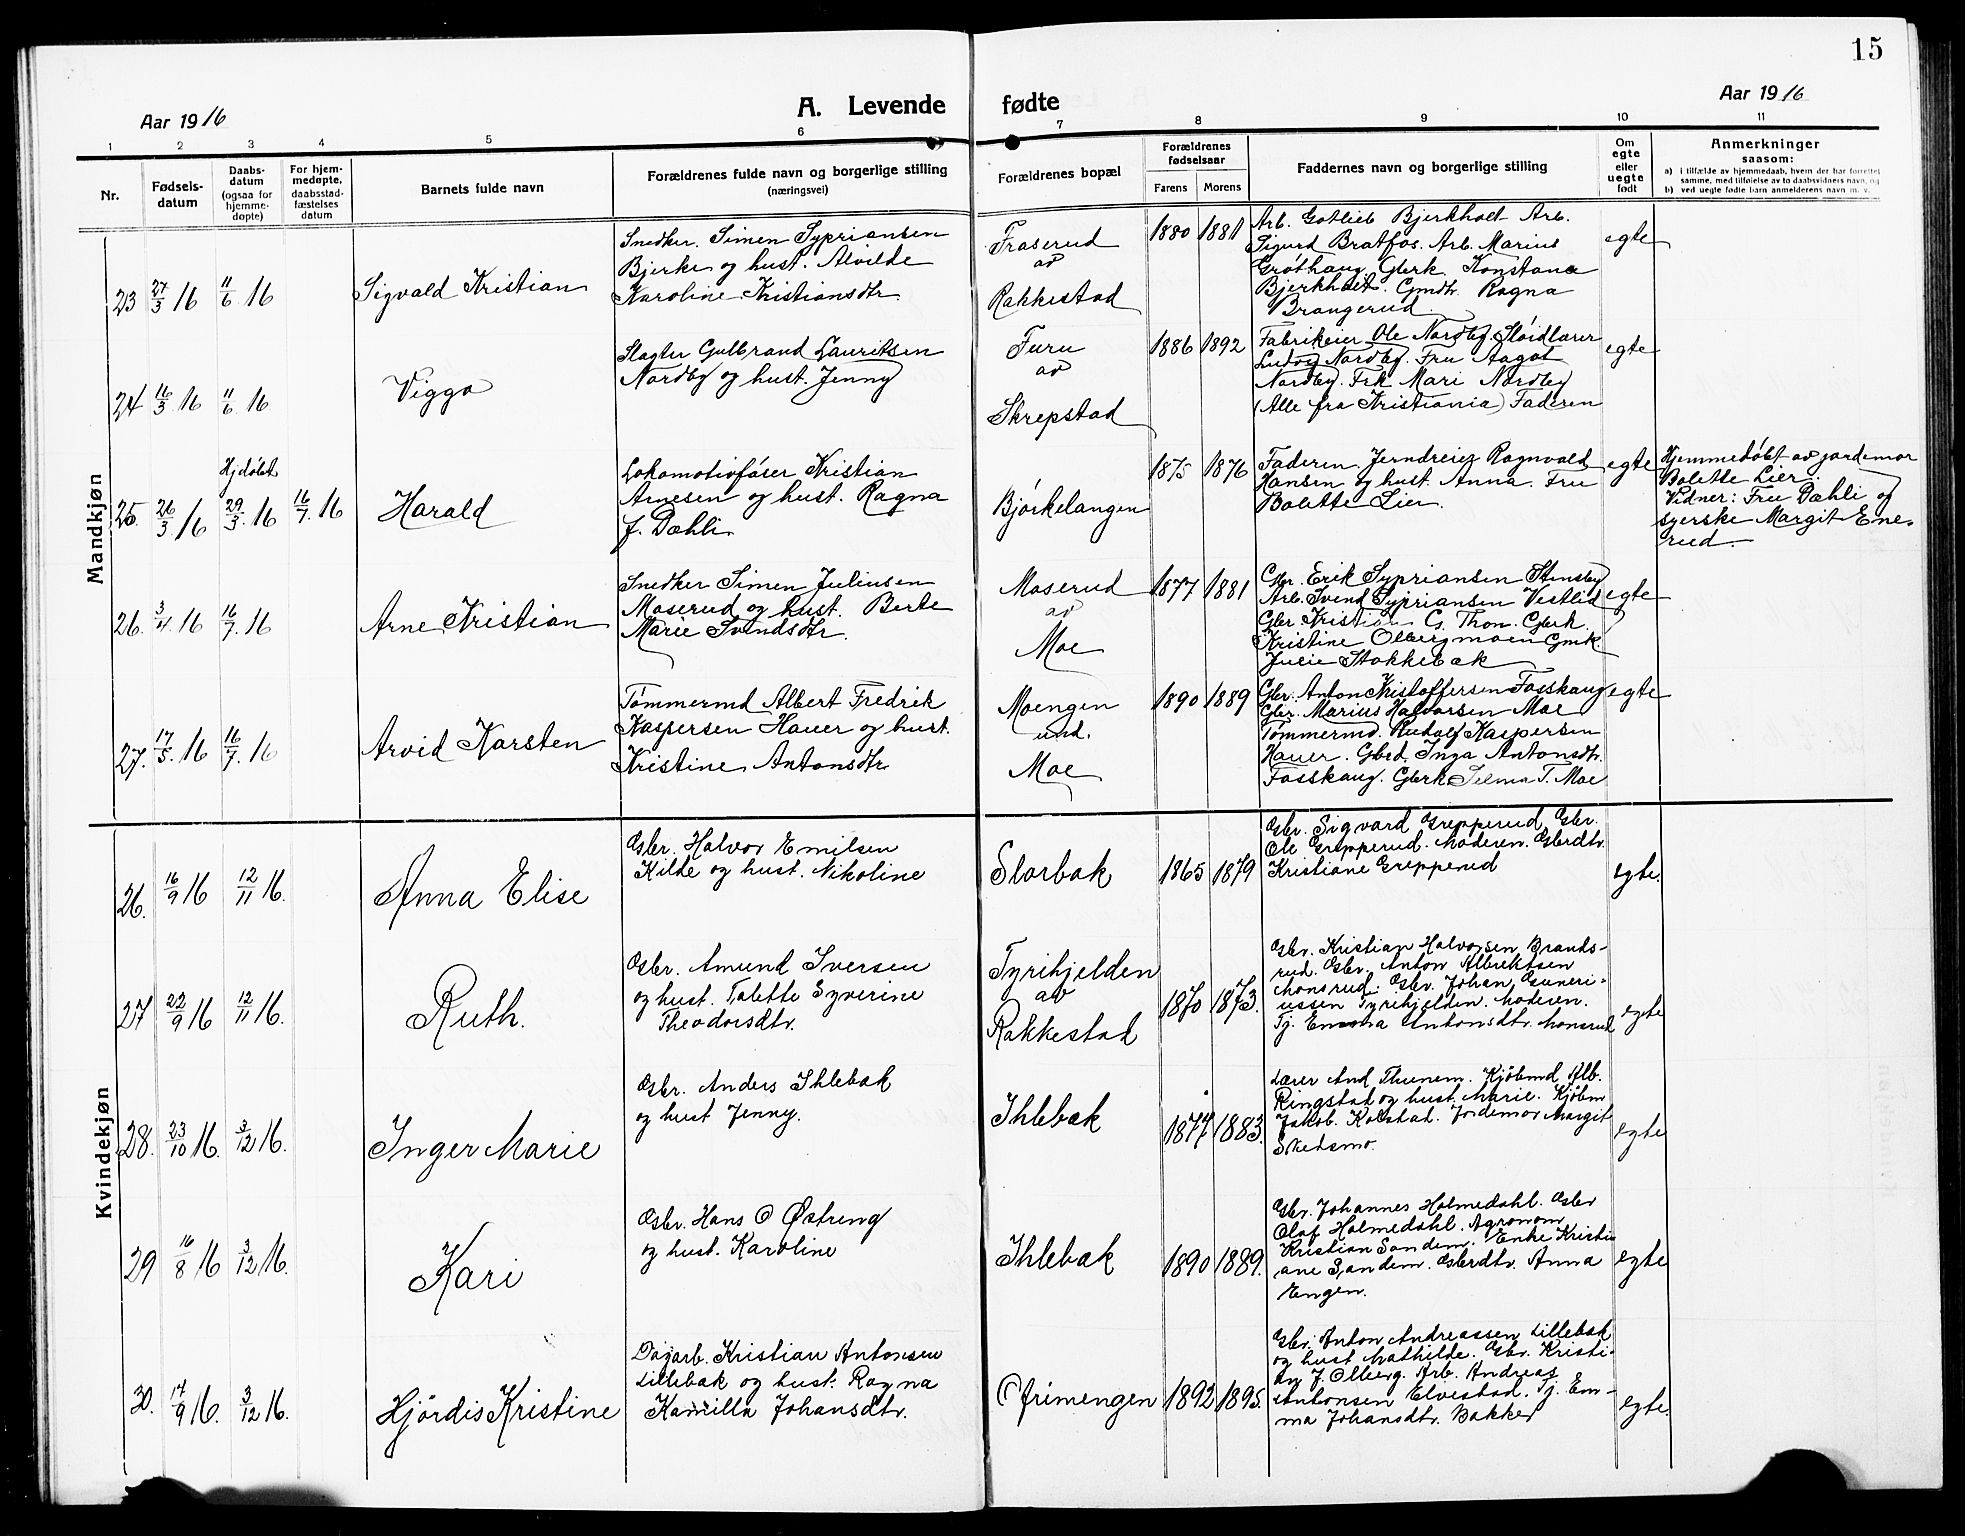 15
Aar 1916
A. Levende fødte
Aar 1916
1 2 3 4 5 6 7 8 9 10 11
Nr.
Fødsels-
datum
Daabs-
datum
(ogsaa for
hjemme-
døpte)
For hjem-
medøpte,
daabsstad-
fæstelses
datum
Barnets fulde navn
Forældrenes fulde navn og borgerlige stilling
(næringsvei)
Forældrenes bopæl
Forældrenes
fødselsaar
Farens
Morens
Faddernes navn og borgerlige stilling
Om
egte
eller
uegte
født
Anmerkninger
saasom:
a) i tilfælde av hjemmedaab, hvem der har forrettet
samme, med tilføielse av to daabsvidners navn, og
b) ved uegte fødte barn anmelderens navn m. v.
Mandkjøn
23
27/3 16
11/6 16
Sigvald Kristian
Snedker. Simen Sypriansen
Bjerke og hust. Alvilde
Karoline Kristiansdtr
Fraserud
av
Rakkestad
1880
1881
Arb. Gotlieb Bjerkholt Arb.
Sigurd Bratfos. Arb. Marius
Grøthaug Gbrk Konstana
Bjerkholt. Gmdtr. Ragna
Brangerud.
egte
24
16/3 16
11/6 16
Viggo
Slagter Gulbrand Lauritsen
Nordby og hust. Jenny
Furu
av
Skrepstad
1886
1892
Fabrikeier Ole Nordby. Sløidlærer
Ludvig Nordby. Fru Aagot
Nordby. Frk Mari Nordby
(Alle fra Kristiania) Faderen
egte
25.
26/3 16
Hjdøbt
29/3. 16
16/7. 16
Harald
Lokomotivføser Kristian
Arnesen og hust. Ragna
f. Dæhli
Bjørkelangen
1875
1876
Faderen Jerndreier Ragnvald
Hansen og hust. Anna. Fru
Bolette Lier.
egte
Hjemmedøbt av jordemor
Bolette Lier.
Vidner: Fru Dæhli og
syerske Margit Ene-
rud.
26.
3/4 16
16/7. 16
Arne Kristian
Snedker Simen Juliusen
Moserud og hust. Berte
Marie Svendsdtr.
Moserud
av
Moe
1877
1881
Gbr. Erik Sypriansen Stensby
Arb. Svend Sypriansen Vestlid
Gbr Kristian G. Thon. Gbrk.
Kristine Olbergmoen Gmk.
Julie Stokkebæk
egte
27.
17/5. 16
16/7. 16
Arvid Karsten
Tømmermd Albert Fredrik
Kaspersen Hauer og hust.
Kristine Antonsdtr
Moengen
und.
Moe
1890
1889
Gbr. Anton Kristoffersen Fosskaug
Gbr. Marius Halvorsen Moe
Tømmermd. Rudolf Kaspersen
Hauer. Gbrd. Inga Antonsdtr.
Fosskaug. Gbrk. Selma T. Moe
egte
Kvindekjøn
26.
16/9 16
12/11 16.
Anna Elise
Gbr. Halvor Emilsen
Kilde og hust. Nikoline
Storbak
1865
1879
Gbr. Sigvard Grepperud. Gbr.
Ole Grepperud. Moderen. Gbrdtr.
Kristiane Grepperud
egte.
27
22/9 16
12/11 16.
Ruth.
Gbr. Amund Iversen
og hust. Tolette Syverine
Theodorsdtr.
Tyrihjelden
av
Rakkestad
1870
1873.
Gbr. Kristian Halvorsen Brands-
rud. Gbr. Anton Albrektsen
Monsrud. Gbr. Johan Guneri-
ussen Tyrihjelden. Moderen.
Tj. Emma Antonsdtr. Monsrud
egte
28.
23/10 16.
3/12 16.
Inger Marie
Gbr. Anders Ihlebæk
og hust Jenny.
Ihlebæk
1877
1883.
Lærer And Thunem. Kjøbmd Alb.
Ringstad og hust. Marie. Kjøbm
Jakob. Kolstad. Jordemor Margit
Skedsmo.
egte
29
16/8 16
3/12 16.
Kari
Gbr. Hans O Østreng
og hust. Karoline
Ihlebæk
1890
1889.
Gbr. Johannes Holmedahl. Gbr
Olaf Holmedahl. Agronom
Kristian Sandem. Enke Kristi-
ane Sandem. Gbrdtr. Anna
Engen.
egte
30.
17/9 16.
3/12 16.
Hjørdis Kristine
Dagarb. Kristian Antonsen
Lillebæk og hust. Ragna
Kamilla Johansdtr.
Ofrimengen
1892
1895.
Gbr. Anton Andreassen Lillebæk
og hust Mathilde. Gbr. Kristi-
an J. Olberg. Arb. Andreas
Antonsen Elvestad. Tj. Em-
ma Johansdtr. Bakker
egte.